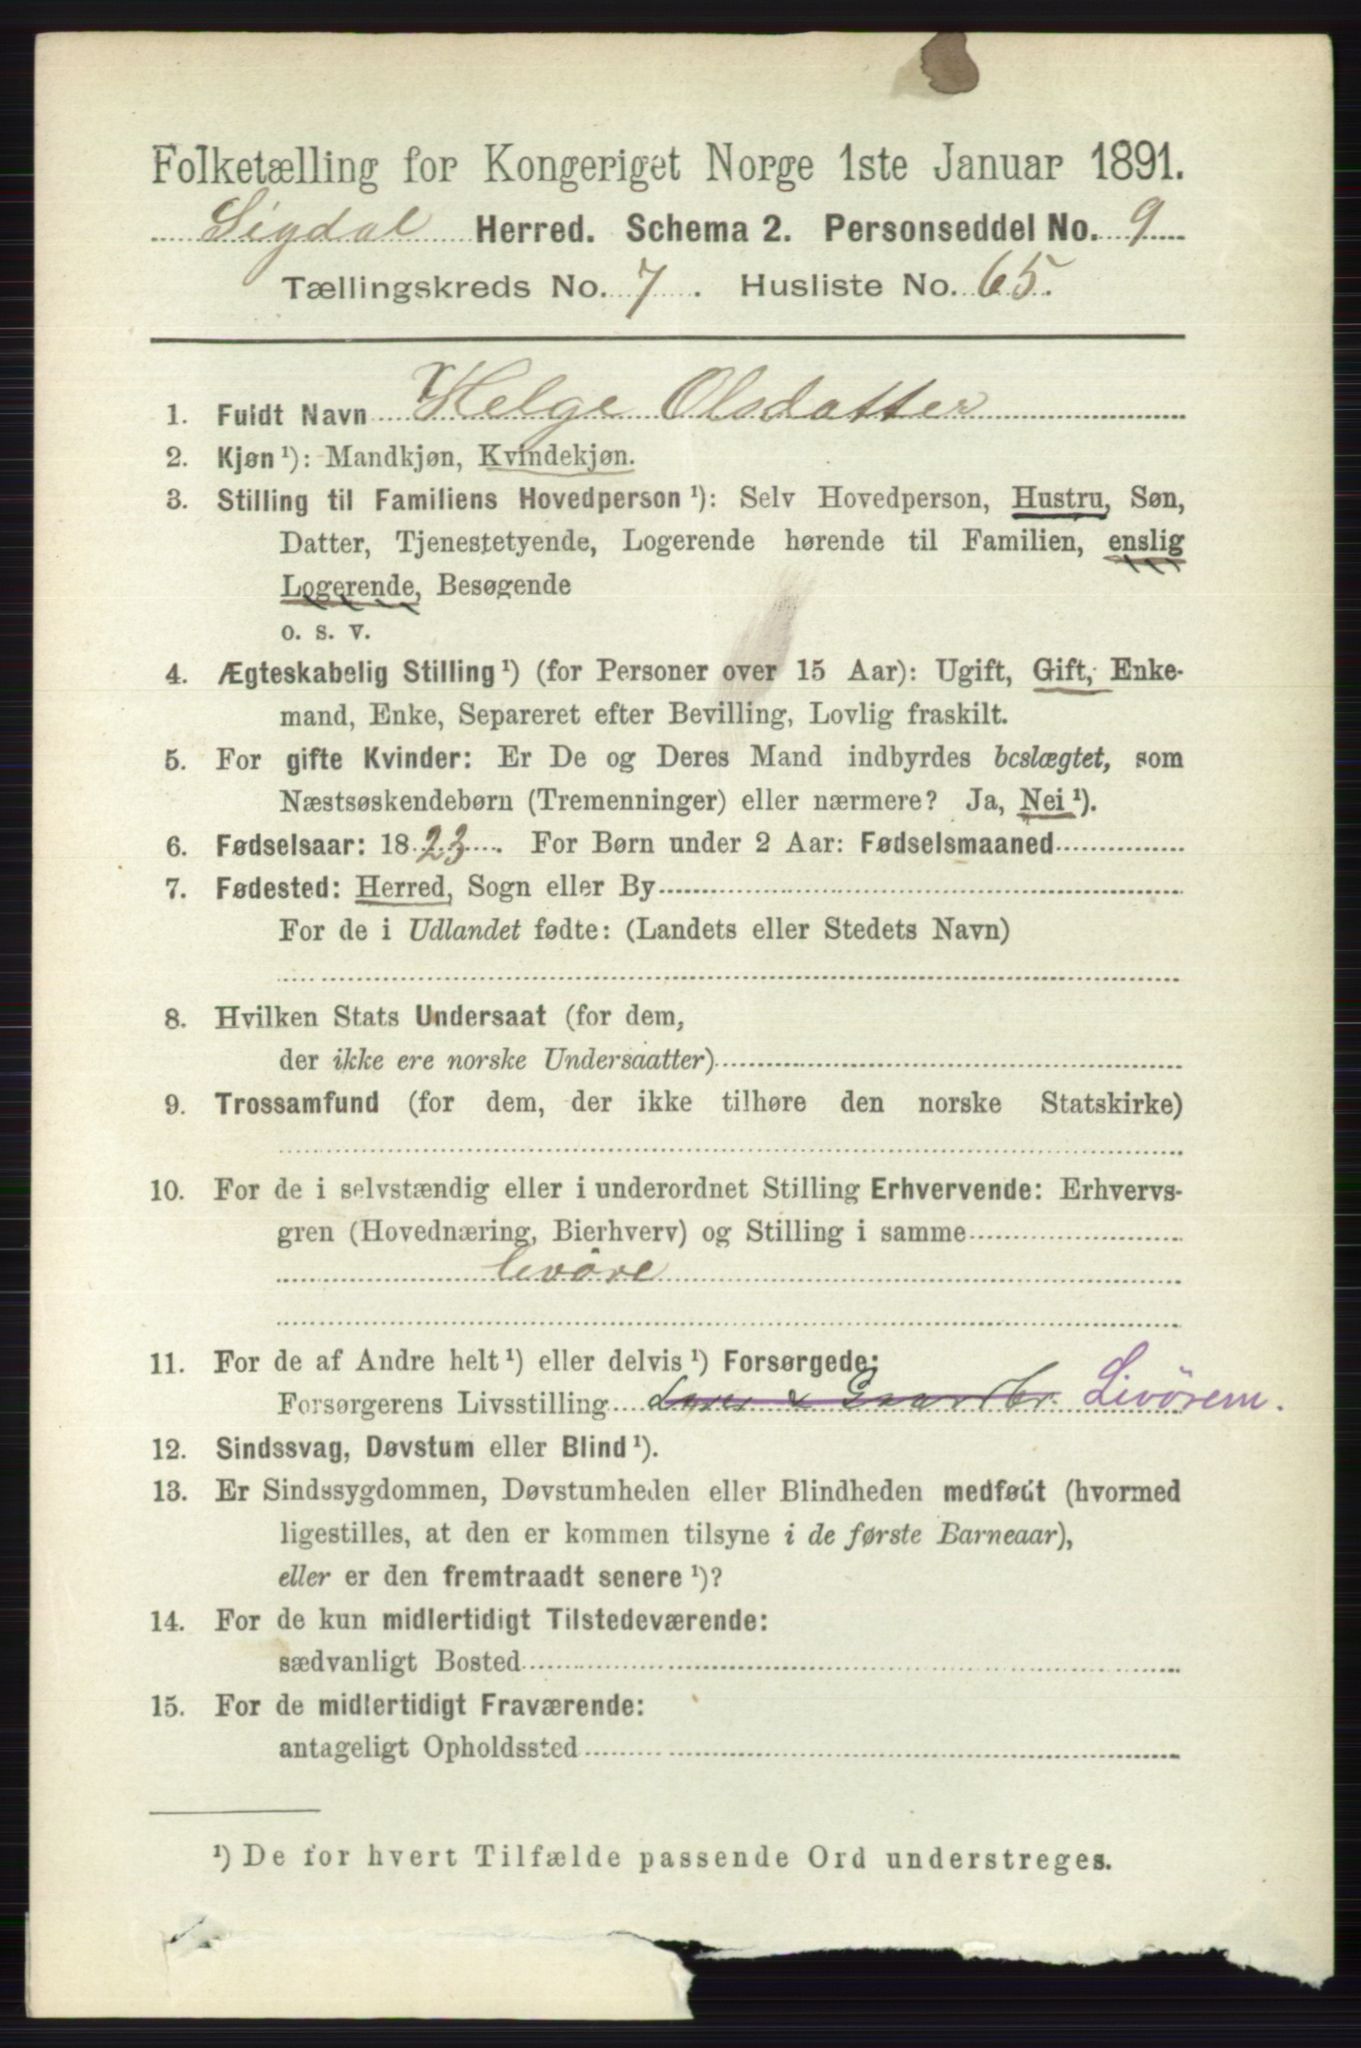 Folketælling for Kongeriget Norge 1ste Januar 1891.
Sigdal Herred. Schema 2. Personseddel No. 9
Tællingskreds No. 7. Husliste No. 65.
1. Fuldt Navn Helge Olsdatter
2. Kjøn¹): Mandkjøn, Kvindekjøn.
3. Stilling til Familiens Hovedperson¹): Selv Hovedperson, Hustru, Søn,
Datter, Tjenestetyende, Logerende hørende til Familien, enslig
Logerende, Besøgende
o. s. v.
4. Ægteskabelig Stilling¹) (for Personer over 15 Aar): Ugift, Gift, Enke-
mand, Enke, Separeret efter Bevilling, Lovlig fraskilt.
5. For gifte Kvinder: Er De og Deres Mand indbyrdes beslægtet, som
Næstsøskendebørn (Tremenninger) eller nærmere? Ja, Nei¹).
6. Fødselsaar: 1823. For Børn under 2 Aar: Fødselsmaaned
7. Fødested: Herred, Sogn eller By
For de i Udlandet fødte: (Landets eller Stedets Navn)
8. Hvilken Stats Undersaat (for dem,
der ikke ere norske Undersaatter)
9. Trossamfund (for dem, der ikke tilhøre den norske Statskirke)
10. For de i selvstændig eller i underordnet Stilling Erhvervende: Erhvervs-
gren (Hovednæring, Bierhverv) og Stilling i samme
levöre
11. For de af Andre helt¹) eller delvis¹) Forsørgede:
Forsørgerens Livsstilling Livörem.
12. Sindssvag, Døvstum eller Blind¹).
13. Er Sindssygdommen, Døvstumheden eller Blindheden medfødt (hvormed
ligestilles, at den er kommen tilsyne i de første Barneaar),
eller er den fremtraadt senere¹)?
14. For de kun midlertidigt Tilstedeværende:
sædvanligt Bosted
15. For de midlertidigt Fraværende:
antageligt Opholdssted
¹) De for hvert Tilfælde passende Ord understreges.